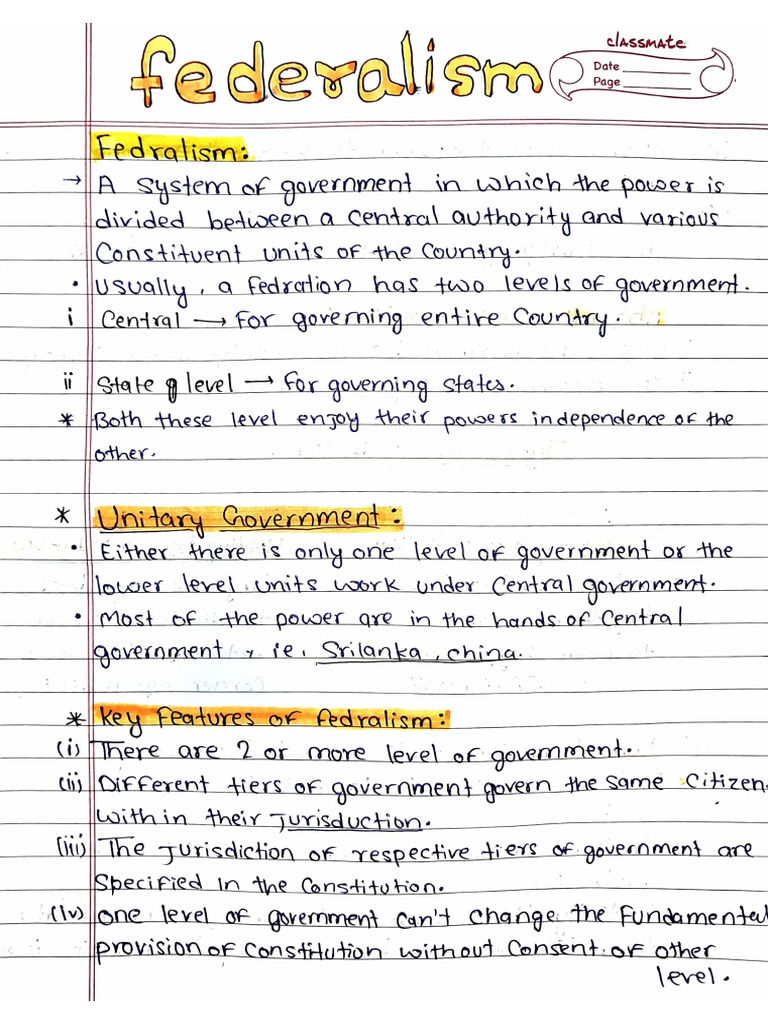 federalism
classmate
Date
Page
Fedralism:
→ A system of government in which the power is
divided between a central authority and various
Constituent units of the Country.
• usually, a fedration has two levels of government.
i Central → For governing entire Country.
ii State level → For governing states.
* Both these level enjoy their powers independence of the
other.
* Unitary Government:
• Either there is only one level of government or the
lower level units work under Central government.
• Most of the power are in the hands of Central
government, ie, Srilanka, china.
* Key Features of fedralism:
(i) There are 2 or more level of government.
(ii) Different tiers of government govern the same Citizen
with in their Jurisduction.
(iii) The Jurisdiction of respective tiers of government are
Specified in the Constitution.
(iv) One level of government can't change the Fundamental
provision of Constitution without Consent of other
level.